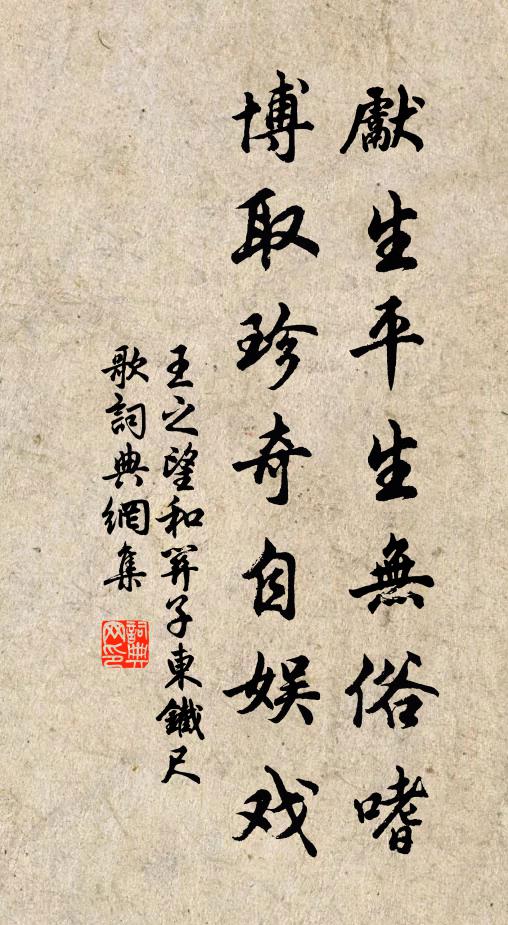 獻生平生無俗嗜
博取珍奇自娛戏
王之望和羿子東鐵尺
歌詞典網集
詞典网印